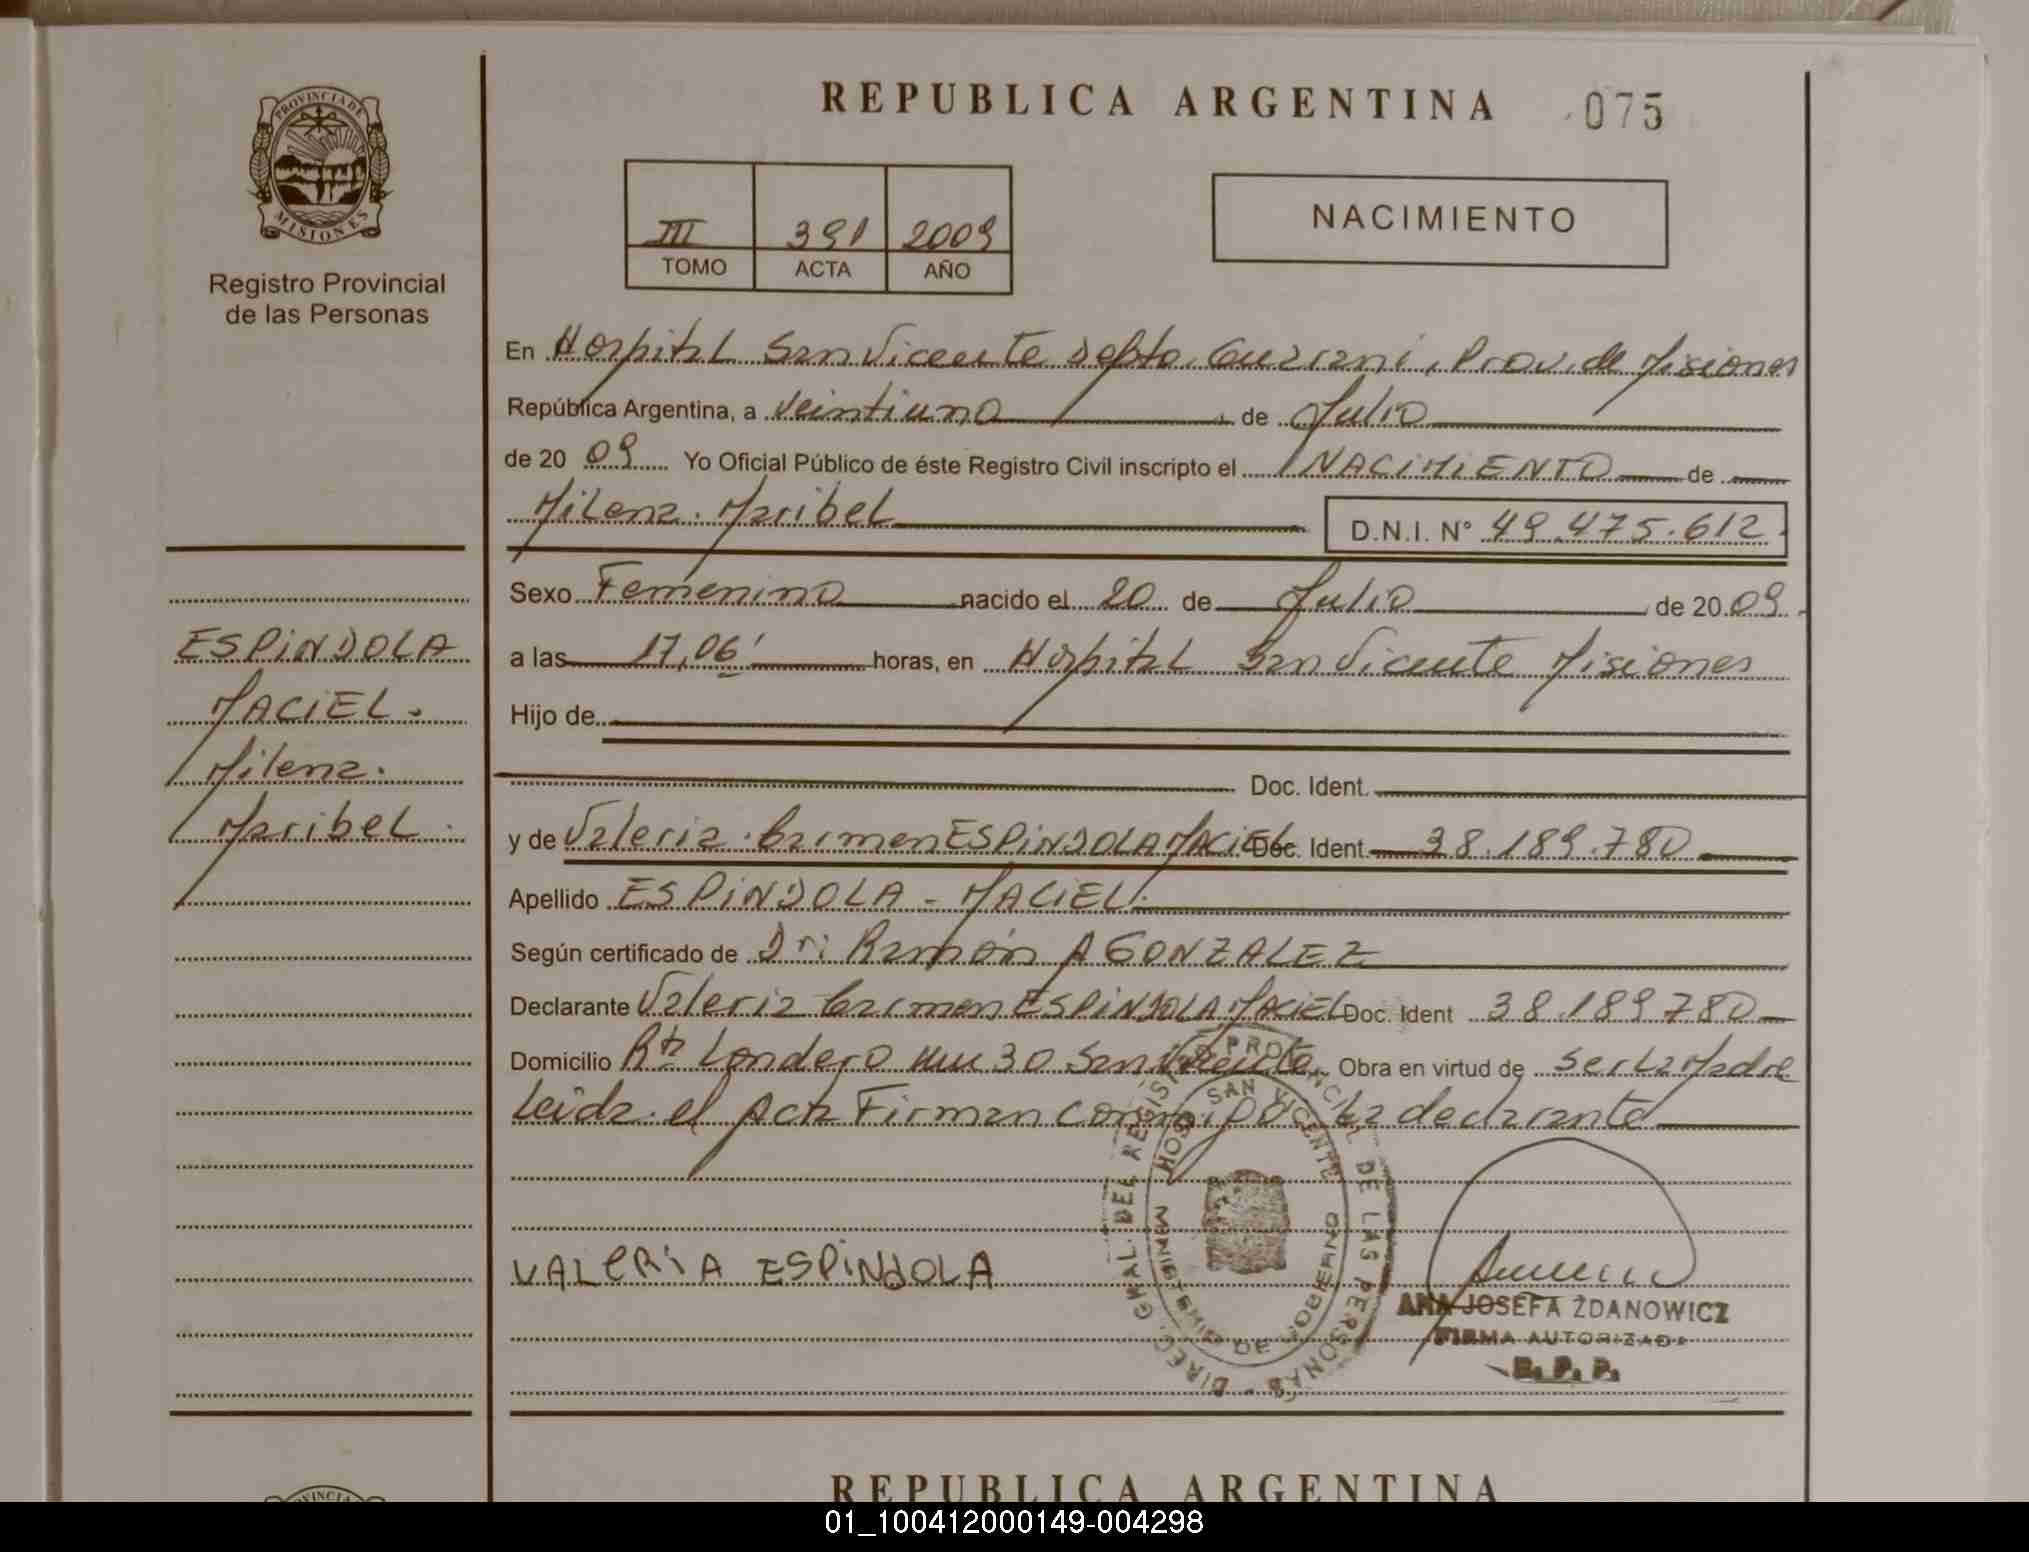 PROVINCIA DE
MISIONES
Registro Provincial
de las Personas
REPUBLICA ARGENTINA 075
III 391 2009
TOMO ACTA AÑO
NACIMIENTO
En Hospital San Vicente Depto. Guarani, Prov. de Misiones
República Argentina, a veintiuno de Julio
de 20 09 Yo Oficial Público de éste Registro Civil inscripto el NACIMIENTO de
Milena Maribel D.N.I. N° 49.475.612
Sexo Femenino nacido el 20 de Julio de 20 09
a las 17,06' horas, en Hospital San Vicente Misiones
Hijo de
Doc. Ident.
y de Valeria Carmen ESPINDOLA MACIEL Doc. Ident. 38.189.780
Apellido ESPINDOLA - MACIEL
Según certificado de Dr: Ramón A GONZALEZ
Declarante Valeria Carmen ESPINDOLA MACIEL Doc. Ident 38.189.780
Domicilio Londero 30 San Vicente Obra en virtud de ser la Madre
Leida el Acta Firman conmigo La declarante
VALERIA ESPINDOLA
DIREC. GRAL. DEL REGISTRO PROVINCIAL DE LAS PERSONAS
HOSP. SAN VICENTE
MINISTERIO DE GOBIERNO
ANA JOSEFA ZDANOWICZ
FIRMA AUTORIZADA
R. P. P.
ESPINDOLA
MACIEL.
Milena.
Maribel.
REPUBLICA ARGENTINA
01_100412000149-004298